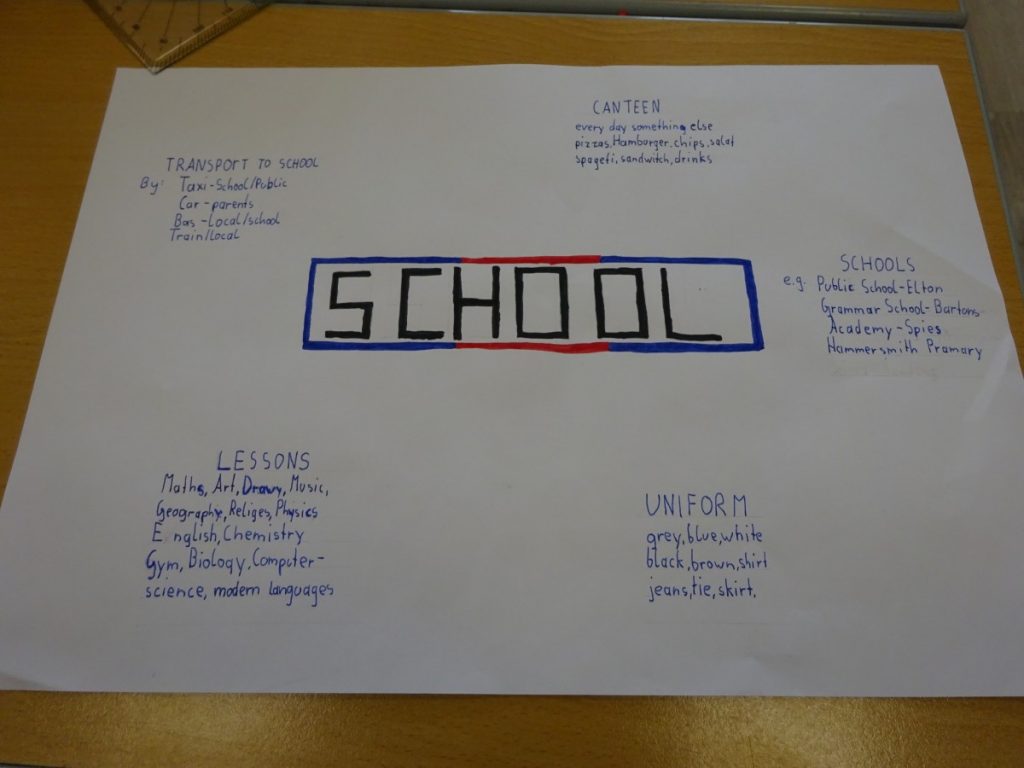 CANTEEN
every day something else
pizzas, Hamburger, chips, salat
spageti, sandwitch, drinks
TRANSPORT TO SCHOOL
By: Taxi-School/Public
Car-parents
Bas-Local/school
Train/Local
SCHOOL
SCHOOLS
e.g. Public School-Elton
Grammar School-Bartons
Academy-Spies
Hammersmith Pramary
LESSONS
Maths, Art, Drawy, Music,
Geography, Religes, Physics
E nglish, Chemistry
Gym, Biology, Computer-
science, modern languages
UNIFORM
grey, blue, white
black, brown, shirt
jeans, tie, skirt.